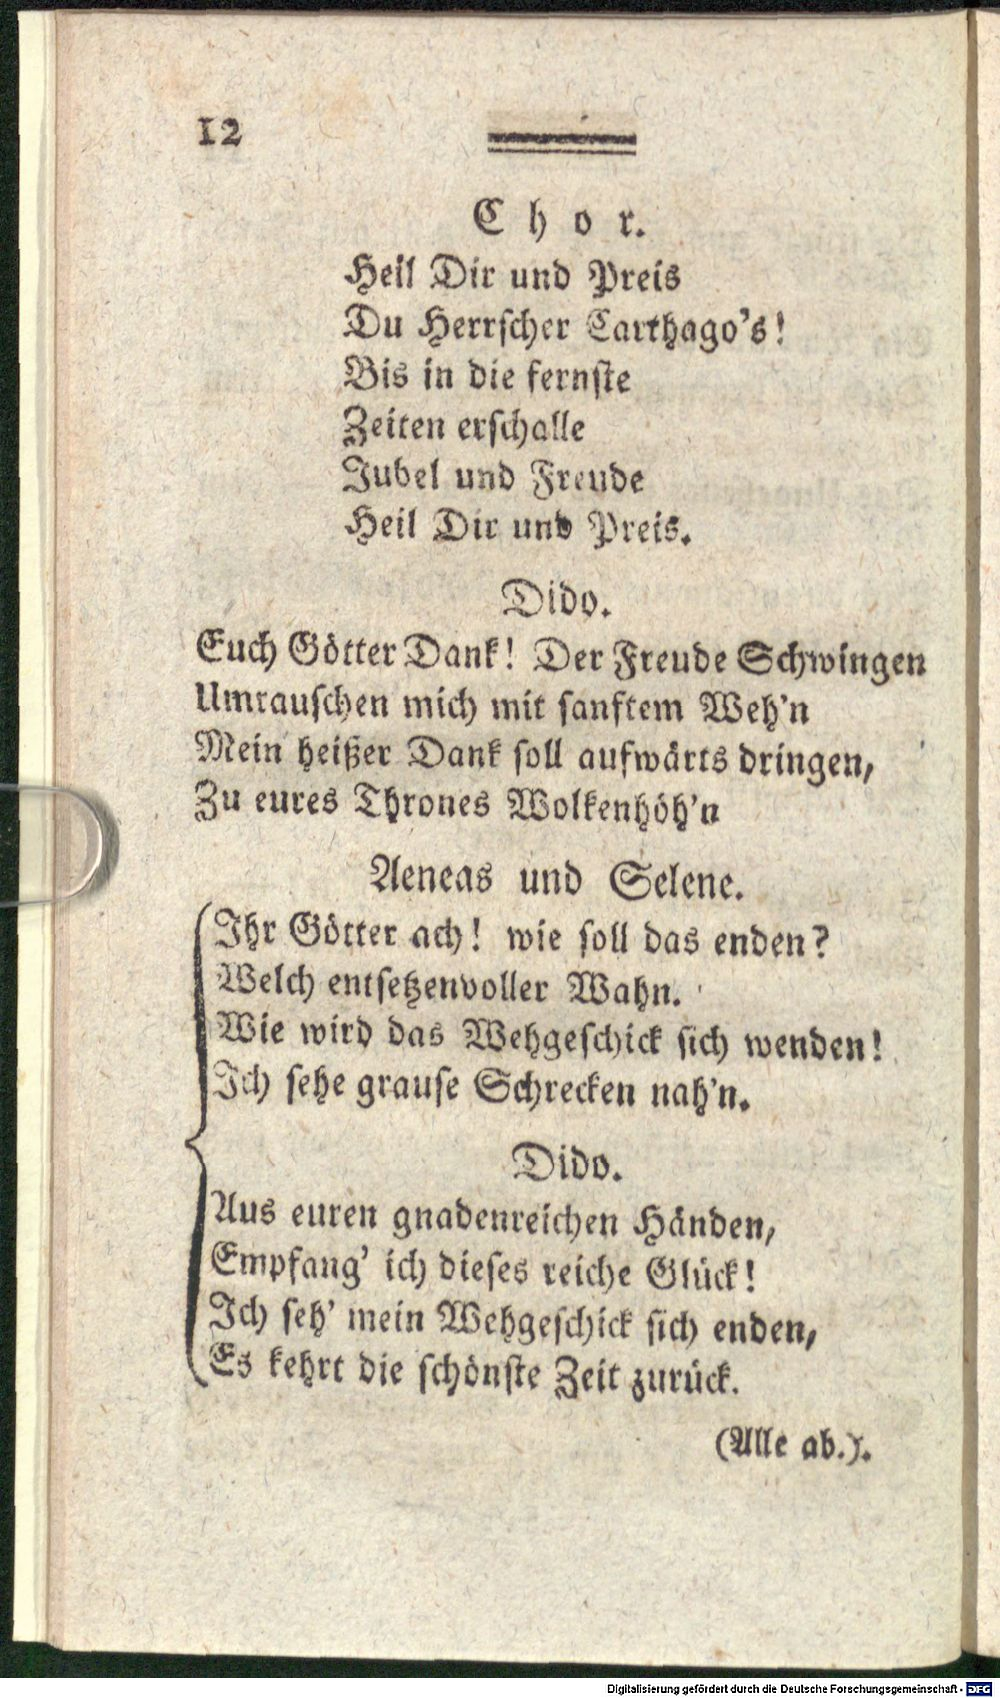 12
Chor.
Heil Dir und Preis
Du Herrscher Carthago's!
Bis in die fernste
Zeiten erschalle
Jubel und Freude
Heil Dir und Preis.
Dido.
Euch Götter Dank! Der Freude Schwingen
Umrauschen mich mit sanftem Weh'n
Mein heißer Dank soll aufwärts dringen,
Zu eures Thrones Wolkenhöh'n
Aeneas und Selene.
Ihr Götter ach! wie soll das enden?
Welch entsetzenvoller Wahn.
Wie wird das Wehgeschick sich wenden!
Ich sehe grause Schrecken nah'n.
Dido.
Aus euren gnadenreichen Händen,
Empfang' ich dieses reiche Glück!
Ich seh' mein Wehgeschick sich enden,
Es kehrt die schönste Zeit zurück.
(Alle ab.).
Digitalisierung gefördert durch die Deutsche Forschungsgemeinschaft - DFG